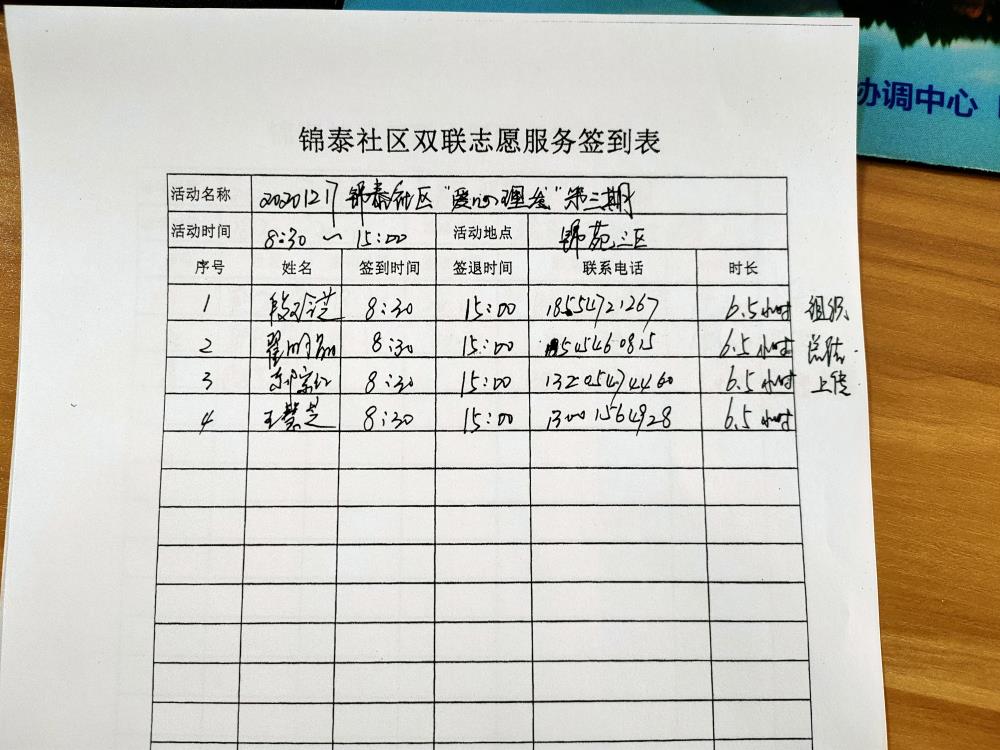 协调中心
锦泰社区双联志愿服务签到表
活动名称 20201217 锦泰社区"爱心理发"第三期
活动时间 8:30 ~ 15:00 活动地点 锦苑三区
序号 姓名 签到时间 签退时间 联系电话 时长
1 8:30 15:00 18554721267 6.5小时 组织
2 8:30 15:00 6.5小时 总结
3 8:30 15:00 13205474460 6.5小时 上传
4 王慧芝 8:30 15:00 13001564928 6.5小时